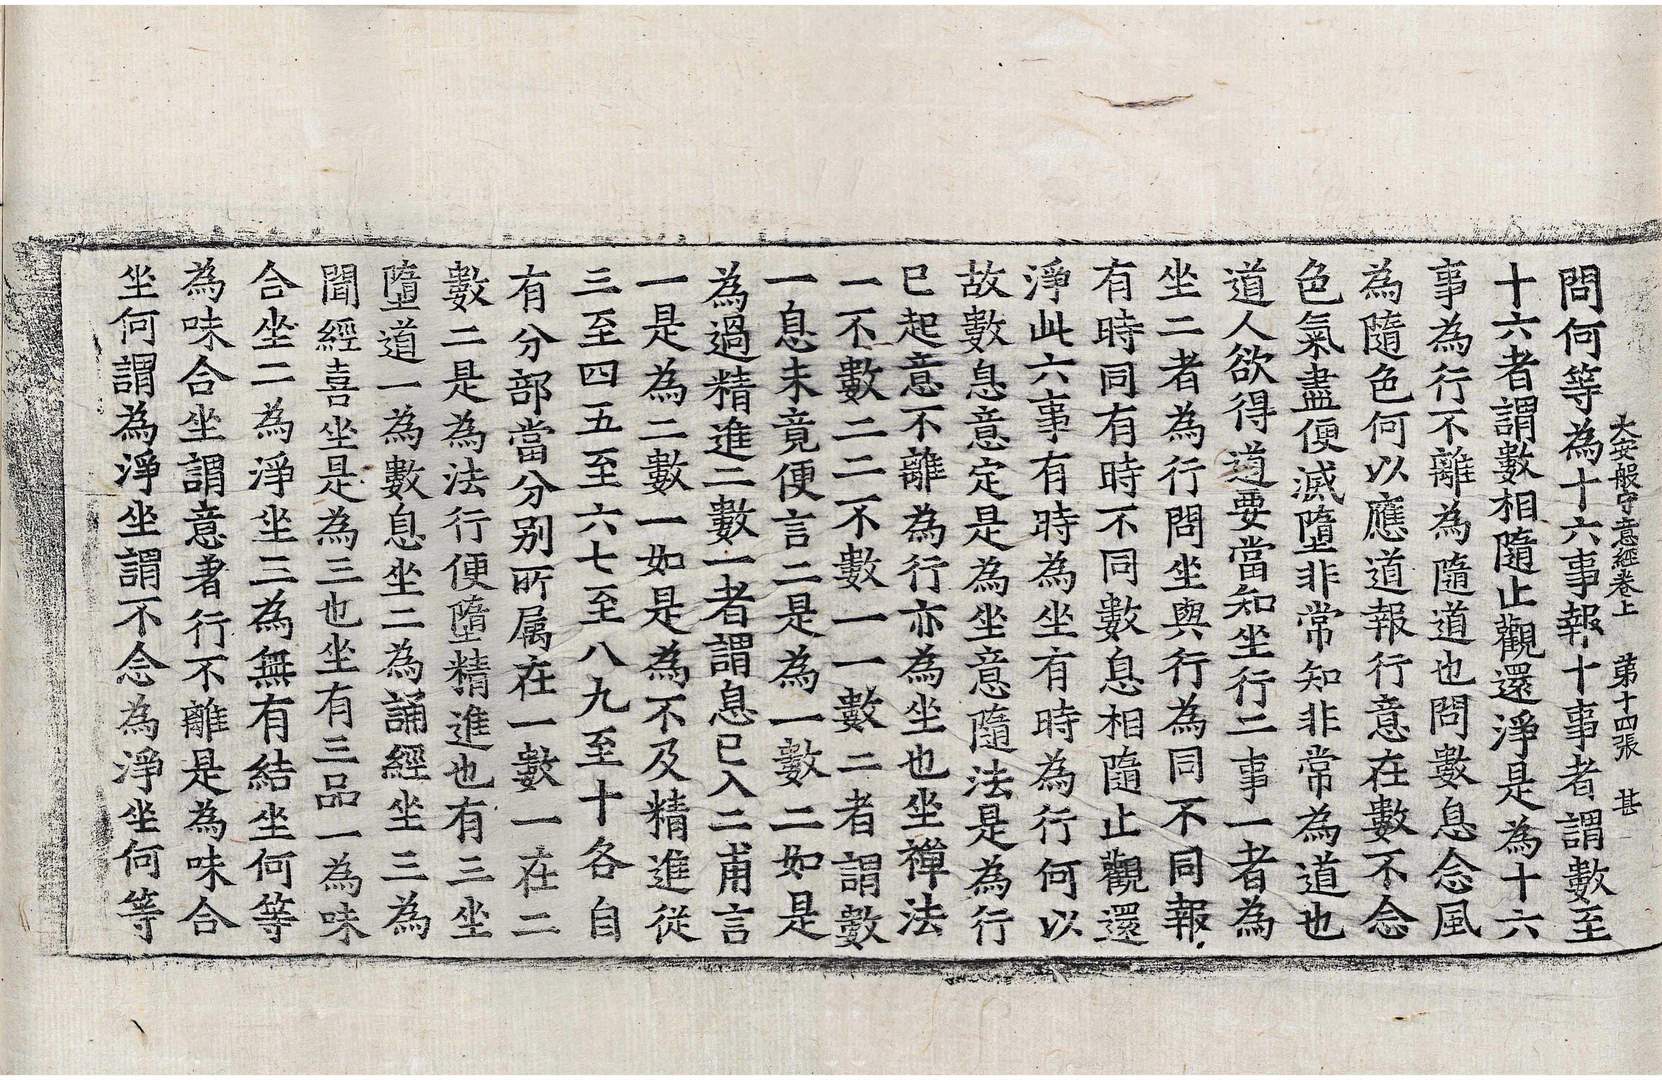 大安般守意經卷上 第十四張 甚
問何等為十六事報十事者謂數至
十六者謂數相隨止觀還淨是為十六
事為行不離為隨道也問數息念風
為隨色何以應道報行意在數不念
色氣盡便滅墮非常知非常為道也
道人欲得道要當知坐行二事一者為
坐二者為行問坐與行為同不同報
有時同有時不同數息相隨止觀還
淨此六事有時為坐有時為行何以
故數息意定是為坐意隨法是為行
已起意不離為行亦為坐也坐禪法
一不數二二不數一一數二者謂數
一息未竟便言二是為一數二如是
為過精進二數一者謂息已入二甫言
一是為二數一如是為不及精進從
三至四五至六七至八九至十各自
有分部當分別所属在一數一在二
數二是為法行便墮精進也有三坐
墮道一為數息坐二為誦經坐三為
聞經喜坐是為三也坐有三品一為味
合坐二為淨坐三為無有結坐何等
為味合坐謂意著行不離是為味合
坐何謂為淨坐謂不念為淨坐何等